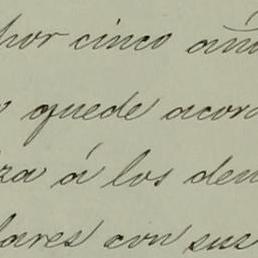 por cinco año
quede acor
za á los dem
lares con sus